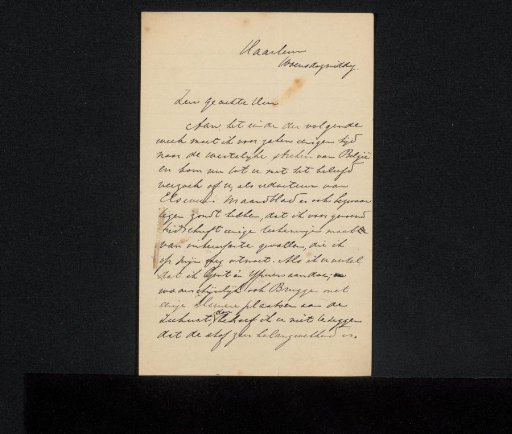 Haarlem
Woensdagmiddag.
Zeer geachte Heer
Aan het einde der volgende
week moet ik voor zaken eenigen tijd
naar de westelijke steden van België
en kom nu tot u met het beleefd
verzoek of u, als redacteur van
Elsevier's Maandblad er ook bezwaar
tegen zoudt hebben, dat ik voor genoemd
tijdschrift eenige teekeningen maakte
van interessante gevallen, die ik
op mijn weg ontmoet. Als ik u vertel
dat ik Gent en Yperen aandoe, en
waarschijnlijk ook Brugge met
enige kleinere plaatsen aan de
Zeekust, dan behoef ik u niet te zeggen
dat de stof zeer belangwekkend is.